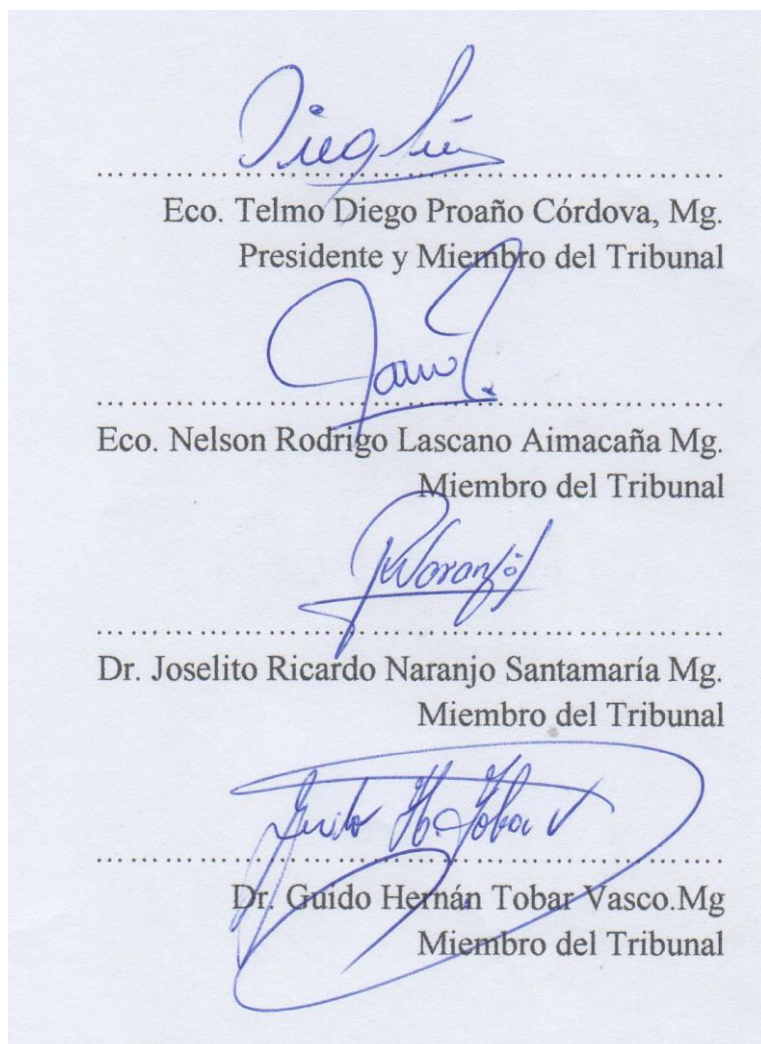 ……………………………………………………..
Eco. Telmo Diego Proaño Córdova, Mg.
Presidente y Miembro del Tribunal
……………………………………………………..
Eco. Nelson Rodrigo Lascano Aimacaña Mg.
Miembro del Tribunal
RNaranjo
……………………………………………………..
Dr. Joselito Ricardo Naranjo Santamaría Mg.
Miembro del Tribunal
Guido H. Tobar V
……………………………………………………..
Dr. Guido Hernán Tobar Vasco.Mg
Miembro del Tribunal